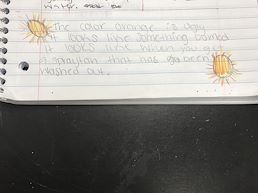 water.
The color orange is ugly
it looks like something bombed
it looks like when you get
a spraytan that has been
washed out.